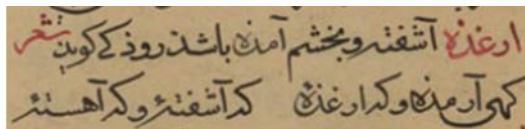 ارغذه آشفته و بخشم آمذه باشذ روذکی کوید شعر
کهی آرمذه و که ارغذهٔ که آشفتهٔ و که آهستهٔ